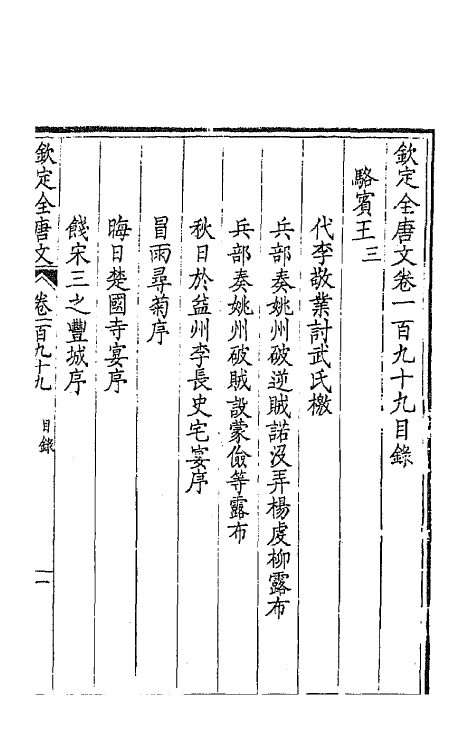 欽定全唐文卷一百九十九目錄
駱賓王三
代李敬業討武氏檄
兵部奏姚州破逆賊諾沒弄楊虔柳露布
兵部奏姚州破賊設蒙儉等露布
秋日於益州李長史宅宴序
冒雨尋菊序
晦日楚國寺宴序
餞宋三之豐城序
欽定全唐文
卷一百九十九
目錄
一